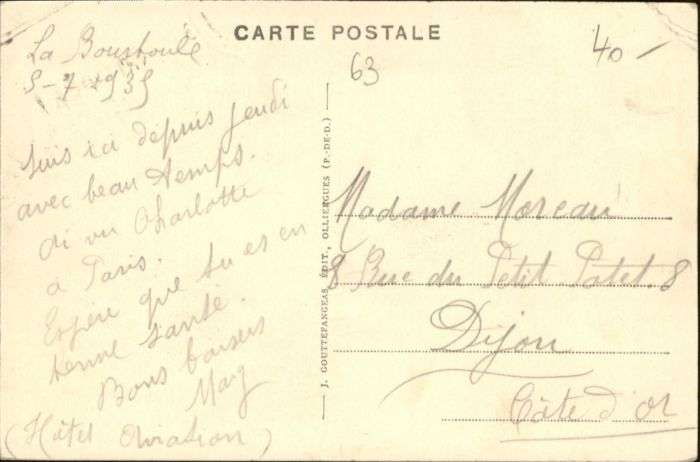 CARTE POSTALE
63
40 -
La Bourboule
5-7-1935
Suis ici depuis jeudi
avec beau temps.
Ai vu Charlotte
à Paris.
Espère que tu es en
bonne santé.
Bons baisers
Mag
(Hôtel Aviation)
J. GOUTTEFANGEAS, ÉDIT., OLLIERGUES (P.-DE-D.)
Madame Moreau
8 Rue du Petit Potet. 8
Dijon
Côte d'Or